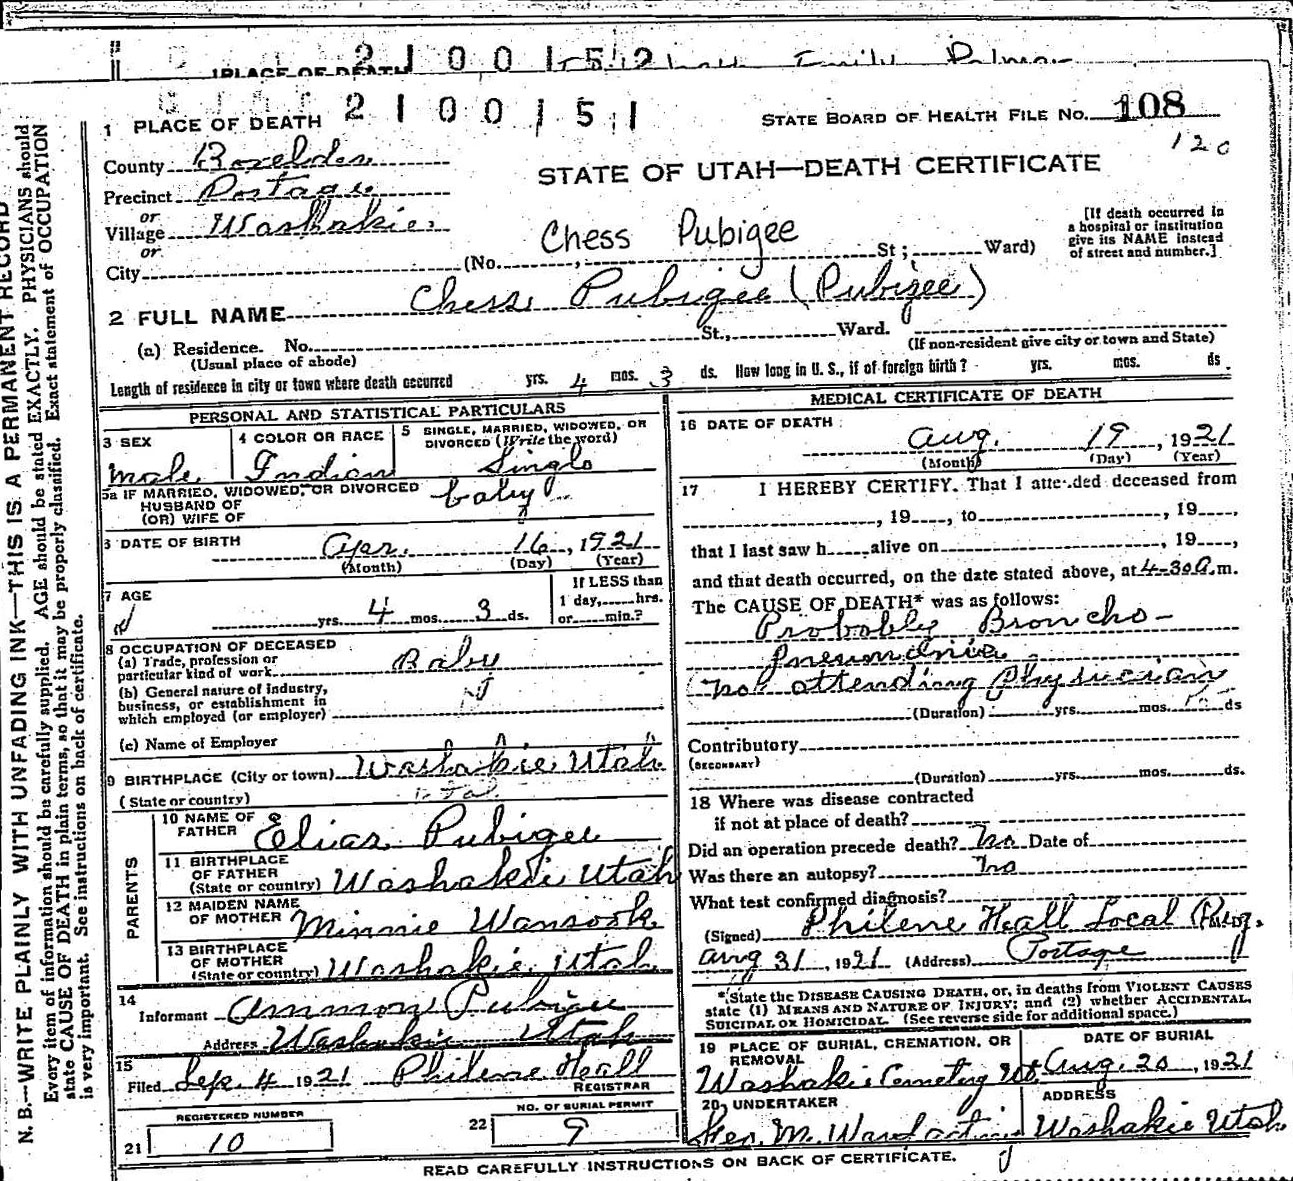 PLACE OF DEATH 2100152 Emily Palmer
2100151
1 PLACE OF DEATH
STATE BOARD OF HEALTH FILE No. 108
120
County Boxelder
STATE OF UTAH—DEATH CERTIFICATE
Precinct Portage
or
Village Washakie
or
City (No. , St; Ward)
Chess Pubigee
[If death occurred in
a hospital or institution
give its NAME instead
of street and number.]
2 FULL NAME Chess Pubigee (Pubigee)
(a) Residence. No. St., Ward.
(Usual place of abode) (If non-resident give city or town and State)
Length of residence in city or town where death occurred yrs. 4 mos. 3 ds. How long in U. S., if of foreign birth? yrs. mos. ds.
PERSONAL AND STATISTICAL PARTICULARS
3 SEX
male
4 COLOR OR RACE
Indian
5 SINGLE, MARRIED, WIDOWED, OR
DIVORCED (Write the word)
Single
5a IF MARRIED, WIDOWED, OR DIVORCED
HUSBAND OF
(OR) WIFE OF
baby
6 DATE OF BIRTH
Apr. 16, 1921
(Month) (Day) (Year)
7 AGE
yrs. 4 mos. 3 ds.
If LESS than
1 day, hrs.
or min.?
8 OCCUPATION OF DECEASED
(a) Trade, profession or
particular kind of work Baby
(b) General nature of industry,
business, or establishment in
which employed (or employer)
(c) Name of Employer
9 BIRTHPLACE (City or town) Washakie Utah
(State or country) Utah
PARENTS
10 NAME OF
FATHER Elias Pubigee
11 BIRTHPLACE
OF FATHER
(State or country) Washakie Utah
12 MAIDEN NAME
OF MOTHER Minnie Wansook
13 BIRTHPLACE
OF MOTHER
(State or country) Washakie Utah
14
Informant Ammon Pubigee
Address Washakie Utah
15
Filed Sep. 4 1921 Philene Heall
REGISTRAR
REGISTERED NUMBER
21 10
NO. OF BURIAL PERMIT
22 9
MEDICAL CERTIFICATE OF DEATH
16 DATE OF DEATH
Aug. 19, 1921
(Month) (Day) (Year)
17 I HEREBY CERTIFY. That I attended deceased from
, 19 , to , 19 ,
that I last saw h alive on , 19 ,
and that death occurred, on the date stated above, at 4-30 a.m.
The CAUSE OF DEATH* was as follows:
Probably Broncho-
pneumonia
(no attending Physician
(Duration) yrs. mos. ds
Contributory
(SECONDARY)
(Duration) yrs. mos. ds.
18 Where was disease contracted
if not at place of death?
Did an operation precede death? No Date of
Was there an autopsy? No
What test confirmed diagnosis?
(Signed) Philene Heall Local Reg.
Aug 31, 1921 (Address) Portage
*State the DISEASE CAUSING DEATH, or, in deaths from VIOLENT CAUSES
state (1) MEANS AND NATURE OF INJURY; and (2) whether ACCIDENTAL,
SUICIDAL OR HOMICIDAL. (See reverse side for additional space.)
19 PLACE OF BURIAL, CREMATION, OR
REMOVAL
Washakie Cemetery Ut.
DATE OF BURIAL
Aug. 20, 1921
20 UNDERTAKER
Geo. M. Ward
ADDRESS
Washakie Utah
READ CAREFULLY INSTRUCTIONS ON BACK OF CERTIFICATE.
N. B.—WRITE PLAINLY WITH UNFADING INK—THIS IS A PERMANENT RECORD
Every item of information should be carefully supplied. AGE should be stated EXACTLY. PHYSICIANS should
state CAUSE OF DEATH in plain terms, so that it may be properly classified. Exact statement of OCCUPATION
is very important. See instructions on back of certificate.